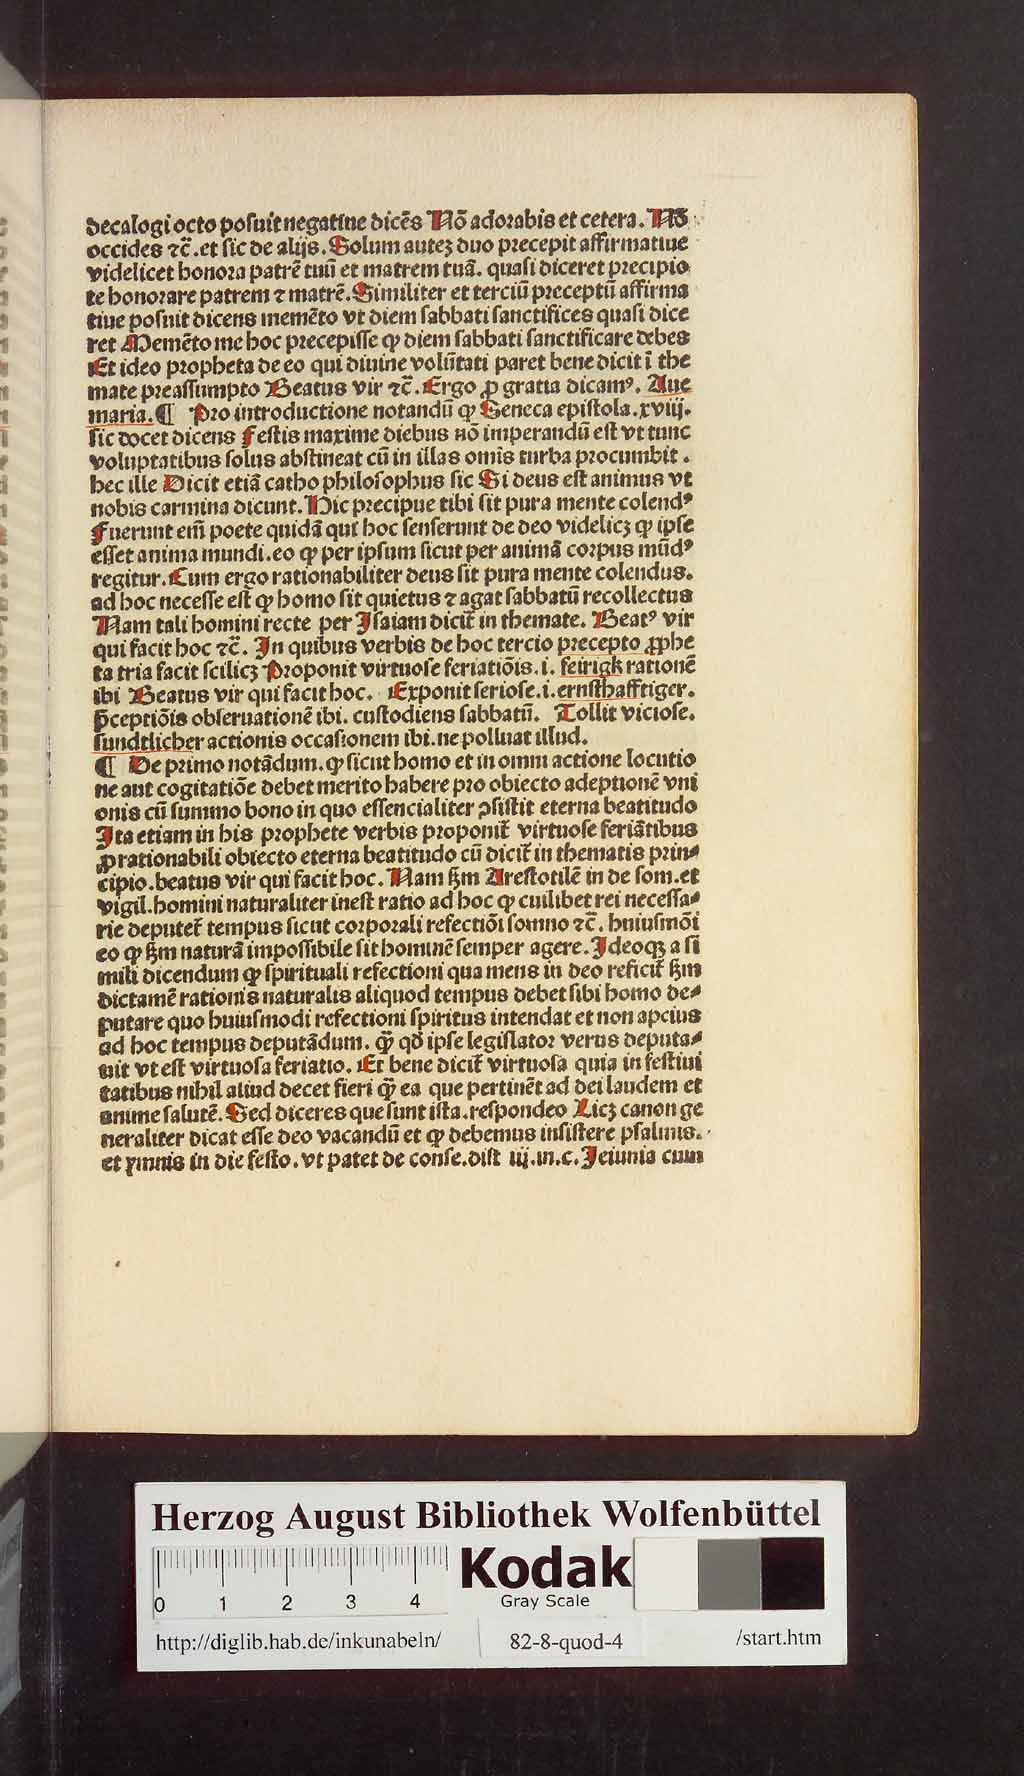 decalogi octo posuit negatiue dicēs Nō adorabis et cetera. Nō
occides ⁊c̄. et sic de alijs. Solum autēz duo precepit affirmatiue
videlicet honora patrē tuū et matrem tuā. quasi diceret precipio
te honorare patrem ⁊ matrē. Similiter et terciū preceptū affirma
tiue posuit dicens memēto vt diem sabbati sanctifices quasi dice
ret Memēto me hoc precepisse ꝙ diem sabbati sanctificare debes
Et ideo propheta de eo qui diuine volūtati paret bene dicit ī the
mate preassumpto Beatus vir ⁊c̄. Ergo ꝓ gratia dicamꝰ. Aue
maria. ¶ Pro introductione notandū ꝙ Seneca epistola. xviij.
sic docet dicens Festis maxime diebus nō imperandū est vt tunc
voluptatibus solus abstineat cū in illas omīs turba procumbit.
hec ille Dicit etiā catho philosophus sic Si deus est animus vt
nobis carmina dicunt. Hic precipue tibi sit pura mente colendꝰ
Fuerunt em̄ poete quidā qui hoc senserunt de deo videlicꝫ ꝙ ipse
esset anima mundi. eo ꝙ per ipsum sicut per animā corpus mūdꝰ
regitur. Cum ergo rationabiliter deus sit pura mente colendus.
ad hoc necesse est ꝙ homo sit quietus ⁊ agat sabbatū recollectus
Nam tali homini recte per Isaiam dicit̄ in themate. Beatꝰ vir
qui facit hoc ⁊c̄. In quibus verbis de hoc tercio precepto ꝓphe
ta tria facit scilicꝫ Proponit virtuose feriatiōis. i. feirigk rationē
ibi Beatus vir qui facit hoc. Exponit seriose. i. ernsthafftiger.
p̄ceptiōis obseruationē ibi. custodiens sabbatū. Tollit viciose.
sundtlicher actionis occasionem ibi. ne polluat illud.
¶ De primo notādum. ꝙ sicut homo et in omni actione locutio
ne aut cogitatiōe debet merito habere pro obiecto adeptionē vni
onis cū summo bono in quo essencialiter ꝯsistit eterna beatitudo
Ita etiam in his prophete verbis proponit̄ virtuose feriātibus
ꝓ rationabili obiecto eterna beatitudo cū dicit̄ in thematis prin⸗
cipio. beatus vir qui facit hoc. Nam ẜm Arestotilē in de som. et
vigil. homini naturaliter inest ratio ad hoc ꝙ cuilibet rei necessa⸗
rie deputet̄ tempus sicut corporali refectiōi somno ⁊c̄. huiusmōi
eo ꝙ ẜm naturā impossibile sit hominē semper agere. Ideoqꝫ a si
mili dicendum ꝙ spirituali refectioni qua mens in deo reficit̄ ẜm
dictamē rationis naturalis aliquod tempus debet sibi homo de⸗
putare quo huiusmodi refectioni spiritus intendat et non apcius
ad hoc tempus deputādum. ꝙ̄ qd̄ ipse legislator verus deputa⸗
uit vt est virtuosa feriatio. Et bene dicit̄ virtuosa quia in festiui
tatibus nihil aliud decet fieri ꝙ̄ ea que pertinēt ad dei laudem et
anime salutē. Sed diceres que sunt ista. respondeo Licꝫ canon ge
neraliter dicat esse deo vacandū et ꝙ debemus insistere psalmis.
et ymnis in die festo. vt patet de conse. dist iij. in. c. Ieiunia cum
Herzog August Bibliothek Wolfenbüttel
0 1 2 3 4
Kodak
Gray Scale
http://diglib.hab.de/inkunabeln/ 82-8-quod-4 /start.htm